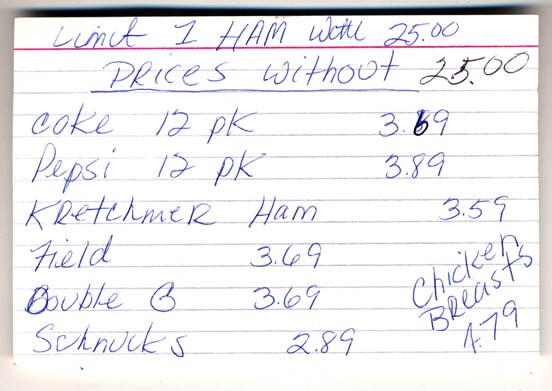 Limit 1 HAM With 25.00
PRICES Without 25.00
Coke 12 pK 3.69
Pepsi 12 pK 3.89
KRetchmeR Ham 3.59
Field 3.69
Double G 3.69
Schnucks 2.89
Chicken
BReasts
1.79